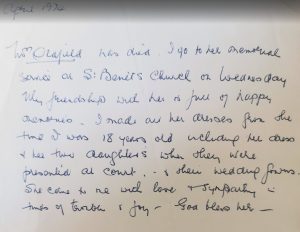 April 1974
Mrs Oldfield has died. I go to her memorial
service at St Benet's Church on Wednesday
My friendship with her is full of happy
memories. I made all her dresses from the
time I was 18 years old including her dress
& her two daughters when they were
presented at court. - & their wedding gowns.
She came to me with love & sympathy in
times of trouble & joy - God bless her -